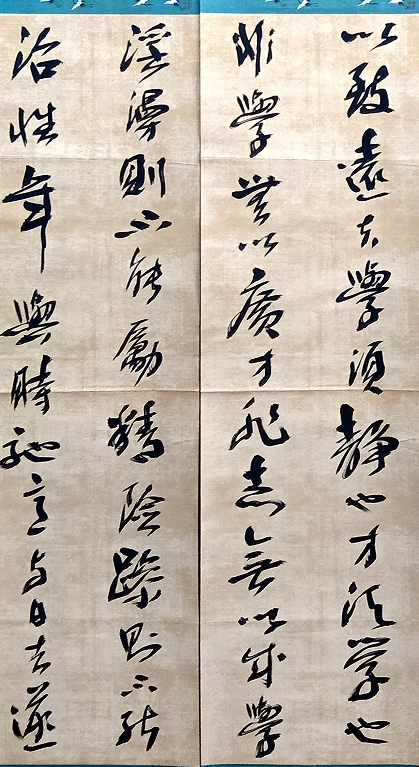 以致遠夫學須靜也才須学也
非學無以廣才非志無以成學
淫漫則不能勵精險躁則不能
治性年與時馳意与日去遂